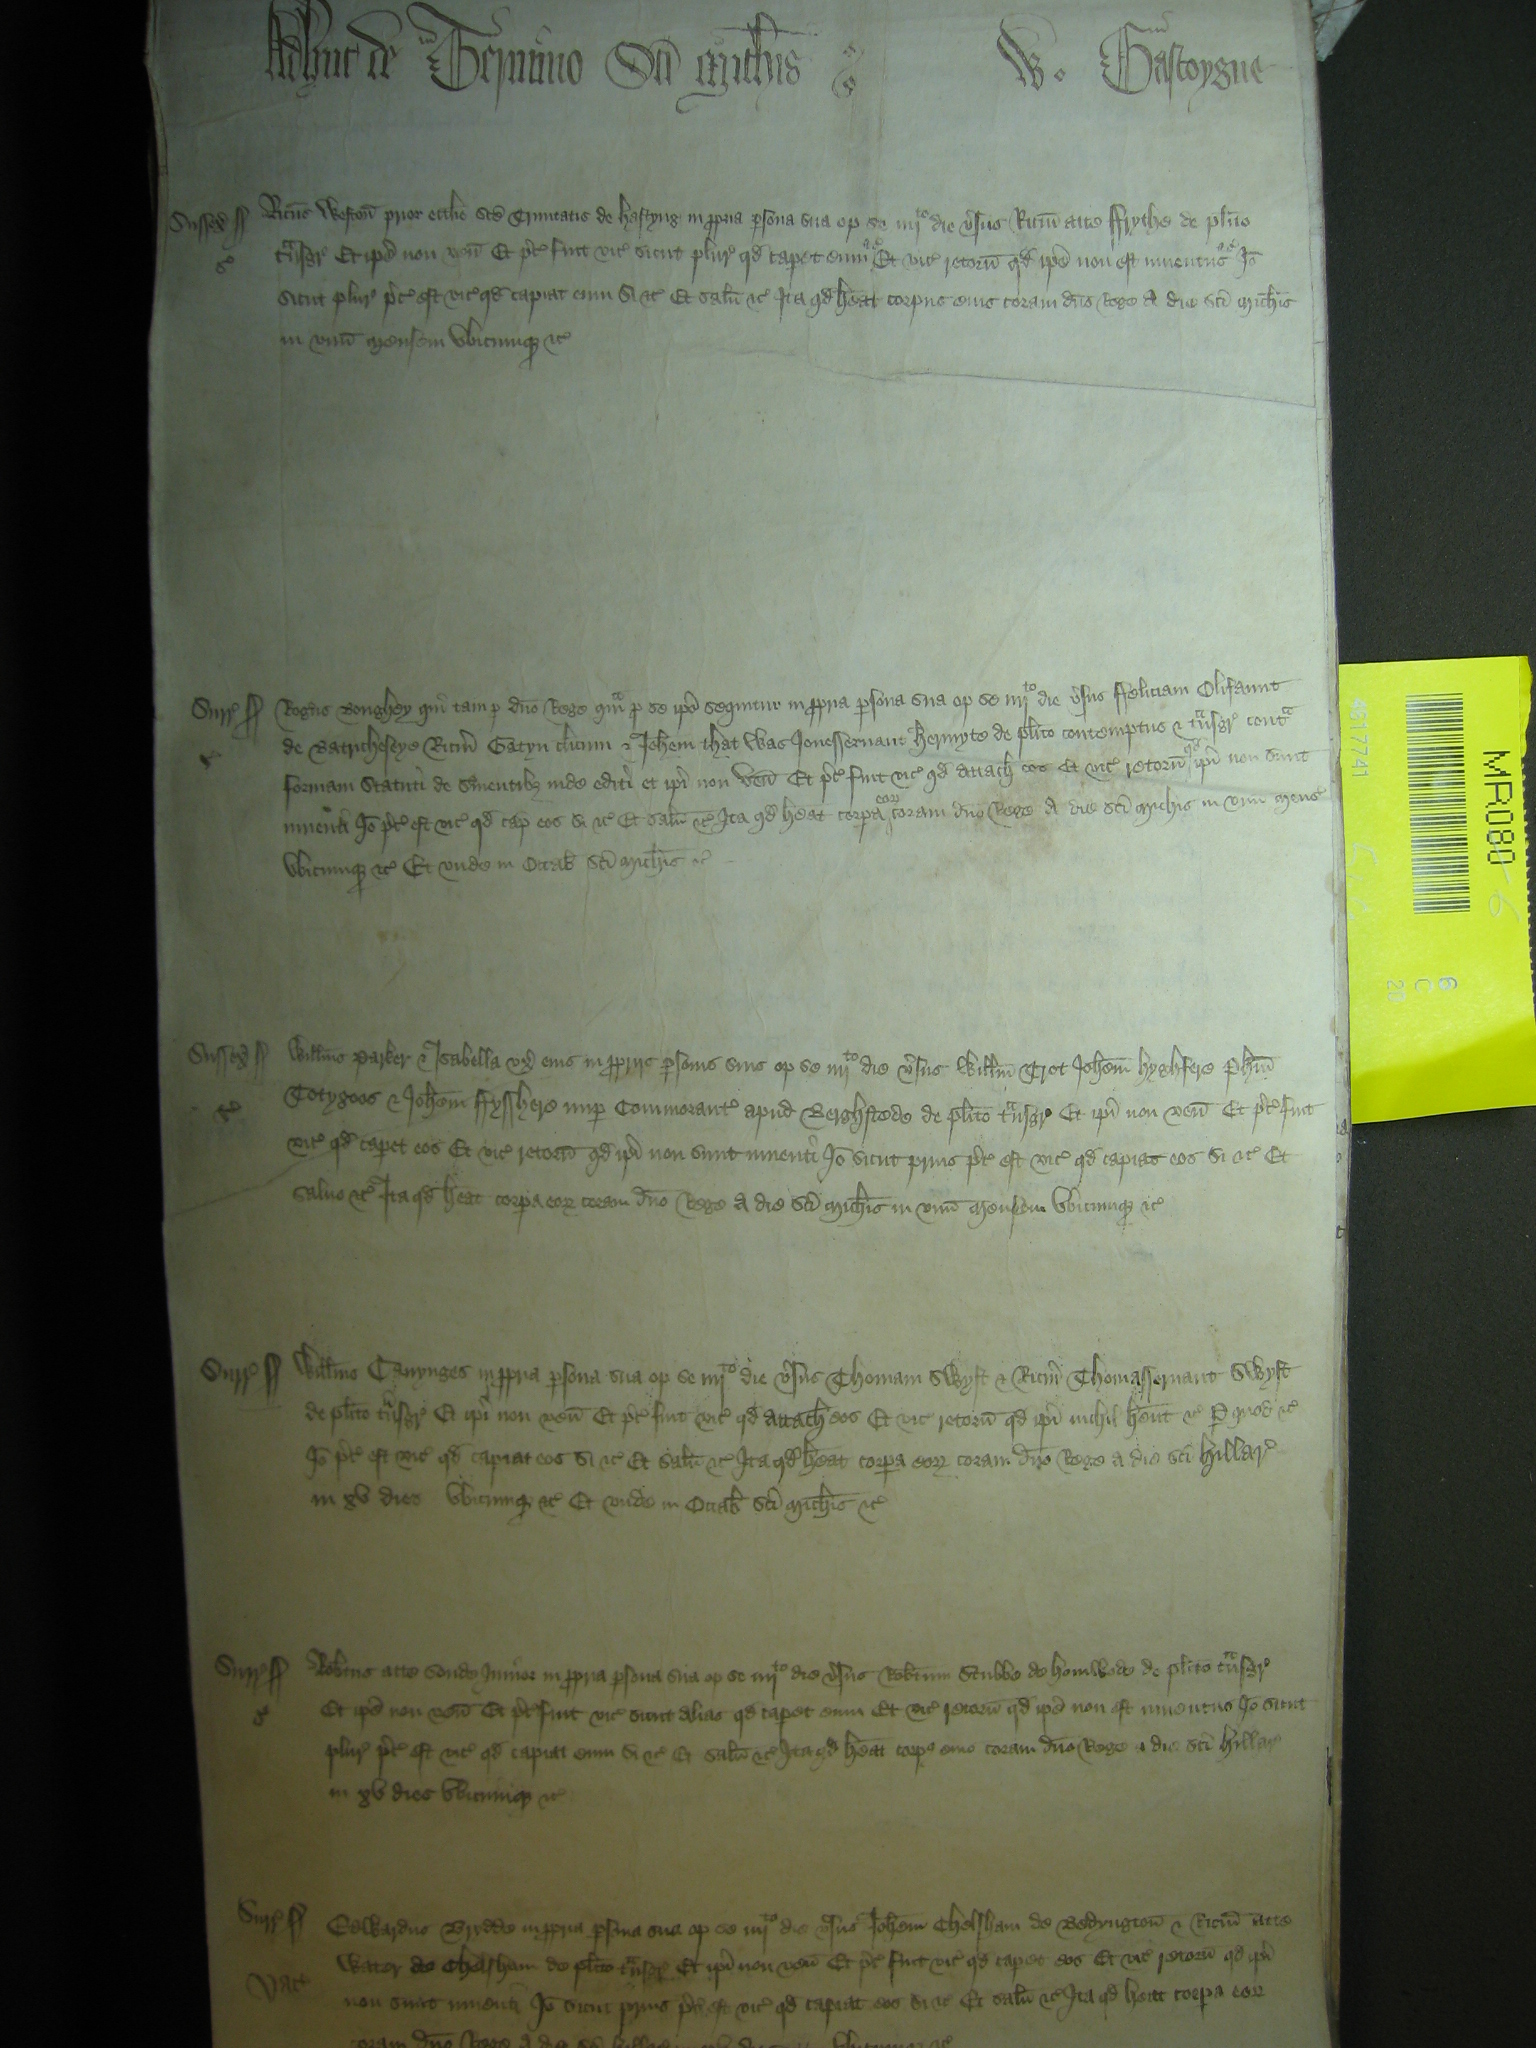 Adhuc de Termino Sci Michis W. Gascoygne
Sussex ss Ricus Weston prior ecclie sce Trinitatis de hastyng in ppria psona sua op se iiijto die vsus Ricm atte ffrythe de plito
tnsgr Et ipe non ven Et pc fuit vic sicut plur qd capet eum &c Et vic retorn qd ipe non est inventus &c Io
sicut plur pc est vic qd capiat eum si &c Et salu &c Ita qd heat corpus eius coram dno Rege A die sci Michis
in unu mensem Vbicumq &c
Surr ss Rogus qui tam p dno Rege qm p se ipo sequitur in ppria psona sua op se iiijto die vsus ffeliciam Olifaunt
de Batricheseye Ricm Gatyn clicum & Johem that was Jonesservant hermyte de plito contemptus & tnsgr conta
formam statuti de svientibz inde editi et ipi non ven Et pc fuit vic qd attach eos Et vic retorn qd ipi non sunt
inventi Io pc est vic qd cap eos si &c Et salu &c Ita qd heat corpa eor coram dno Rege A die sci Michis in unu mens
Vbicumq &c Et unde in Octab sci Michis &c
Sussex ss Willms Parker & Isabella ux eius in ppriis psonis suis op se iiijto die vsus Willm Trot Johem hyghfere Phm
Totygoos & Johem ffysshere nup Commorant apud Berghstede de plito tnsgr Et ipi non ven Et pc fuit
vic qd capet eos Et vic retorn qd ipi non sunt inventi Io sicut prius pc est vic qd capiat eos si &c Et
salvo &c Ita qd heat corpa eor coram dno Rege A die sci Michis in unu mensem Vbicumq &c
Surr ss Willms Canynges in ppria psona sua op se iiijto die vsus Thomam Swyft & Ricm Thomasservant Swyft
de plito tnsgr Et ipi non ven Et pc fuit vic qd attach eos Et vic retorn qd ipi nichil hent &c P quod &c
Io pc est vic qd capiat eos si &c Et salu &c Ita qd heat corpa eor coram dno Rege a die sci hillar
in xv dies Vbicumq &c Et unde in Octab sci Michis &c
Surr ss Robtus atte Junior in ppria psona sua op se iiijto die vsus Robtum Stubbe de de plito tnsgr
Et ipe non ven Et pc fuit vic sicut alias qd capet eum Et vic retorn qd ipe non est inventus Io sicut
plur pc est vic qd capiat eum si &c Et salu &c Ita qd heat corpus eius coram dno Rege a die sci hillar
in xv dies Vbicumq &c
Surr ss Edwardus Brydde in ppria psona sua op se iiijto die vsus Johem Chelsham de Bedyngton & Ricm atte
Vac Water de Chelsham de plito tnsgr Et ipi non ven Et pc fuit vic qd capet eos Et vic retorn qd ipi
non sunt inventi Io sicut prius pc est vic qd capiat eos si &c Et salu &c Ita qd heat corpa eor
coram dno Rege A die sci hillar
MR080-6
4617741
6
C
20